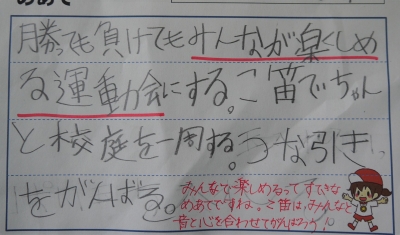 めあて
勝っても負けてもみんなが楽しめ
る運動会にする。こ笛でちゃん
と校庭を一周する。つな引き
をがんばる。
みんなで楽しめるってすてきな
めあてですね。こ笛は、みんなと
音と心を合わせてがんばろう!